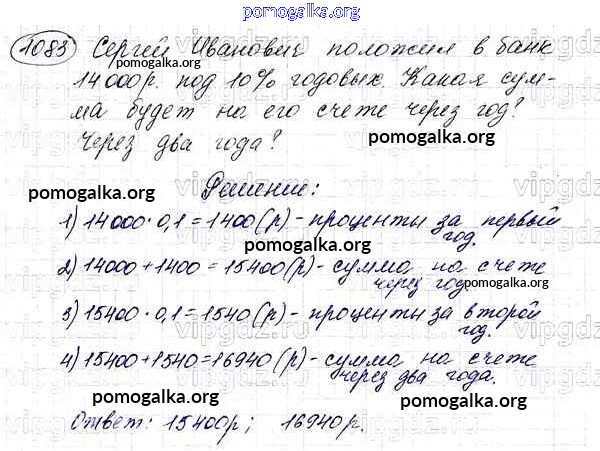 pomogalka.org
1083 Сергей Иванович положил в банк
14000р. под 10% годовых. Какая сум-
ма будет на его счете через год?
Через два года?
pomogalka.org
pomogalka.org
Решение:
pomogalka.org
1) 14000·0,1=1400(р)-проценты за первый
год.
pomogalka.org
2) 14000+1400=15400(р)-сумма на счете
через год
pomogalka.org
3) 15400·0,1=1540(р)-проценты за второй
год.
pomogalka.org
4) 15400+1540=16940(р)-сумма на счете
через два года.
pomogalka.org
pomogalka.org
Ответ: 15400р; 16940р.
pomogalka.org